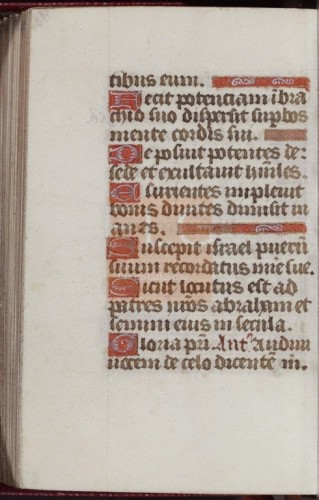 tibus eum.
Fecit potenciam i bra
chio suo dispersit supbos
mente cordis sui.
De posuit potentes de:
sede et exultauit humiles.
Esurientes impleuit
bonis diuites dimisit in
anes.
Suscepit israel pueru
suum recordatus mie sue.
Sicut locutus est ad
patres nros abraham et
semini eius in secula.
Gloria pri. Ant. Audiui
uocem de celo dicentem m.